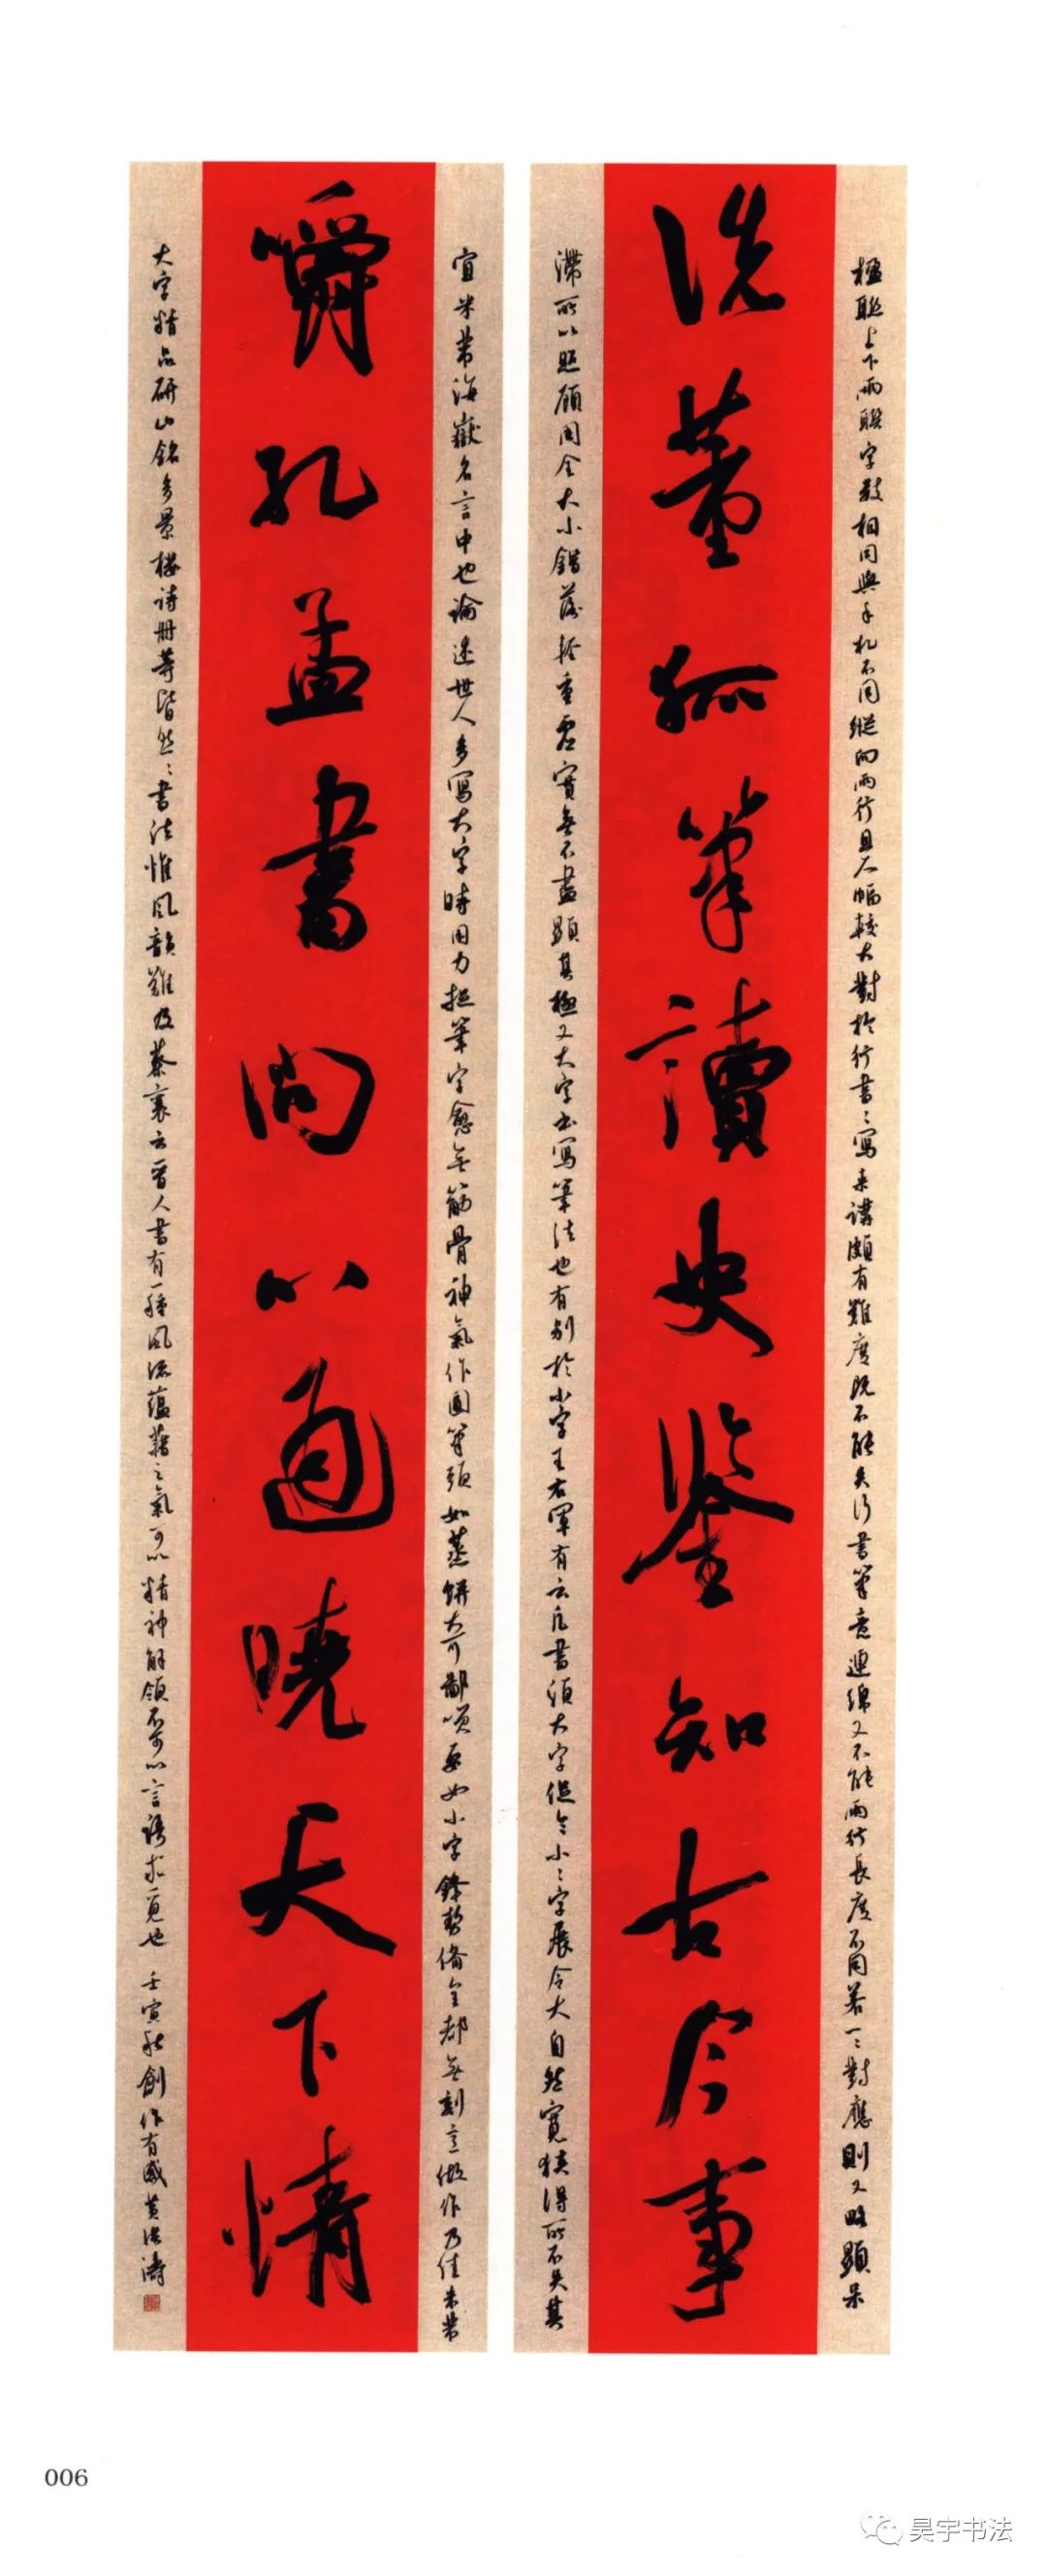 楹联上下兩聯字數相同與手札不同縱向兩行且尺幅較大對於行書之寫來講頗有難度既不能失行書筆意連綿又不能兩行長度不同若一一對應則又略顯呆
洗董狐筆讀史鑒知古今事
滯所以照顧周全大小錯落輕重虛實無不盡顯其極又大字書寫筆法也有別於小字王右軍有云凡書須大字促令小小字展令大自然寬狹得所不失其
宜米芾海嶽名言中也論述世人多寫大字時用力捉筆字愈無筋骨神氣作圓筆頭如蒸餅大可鄙笑要如小字鋒勢備全都無刻意做作乃佳米芾
嚼孔孟書尚以通曉天下情
大字精品研山銘多景樓詩冊等皆然書法惟風韻難及蔡襄云晋人書有一種風流蘊藉之氣可以精神解領不可以言語求覓也 壬寅秋創作有感黄洪濤
006
昊宇书法